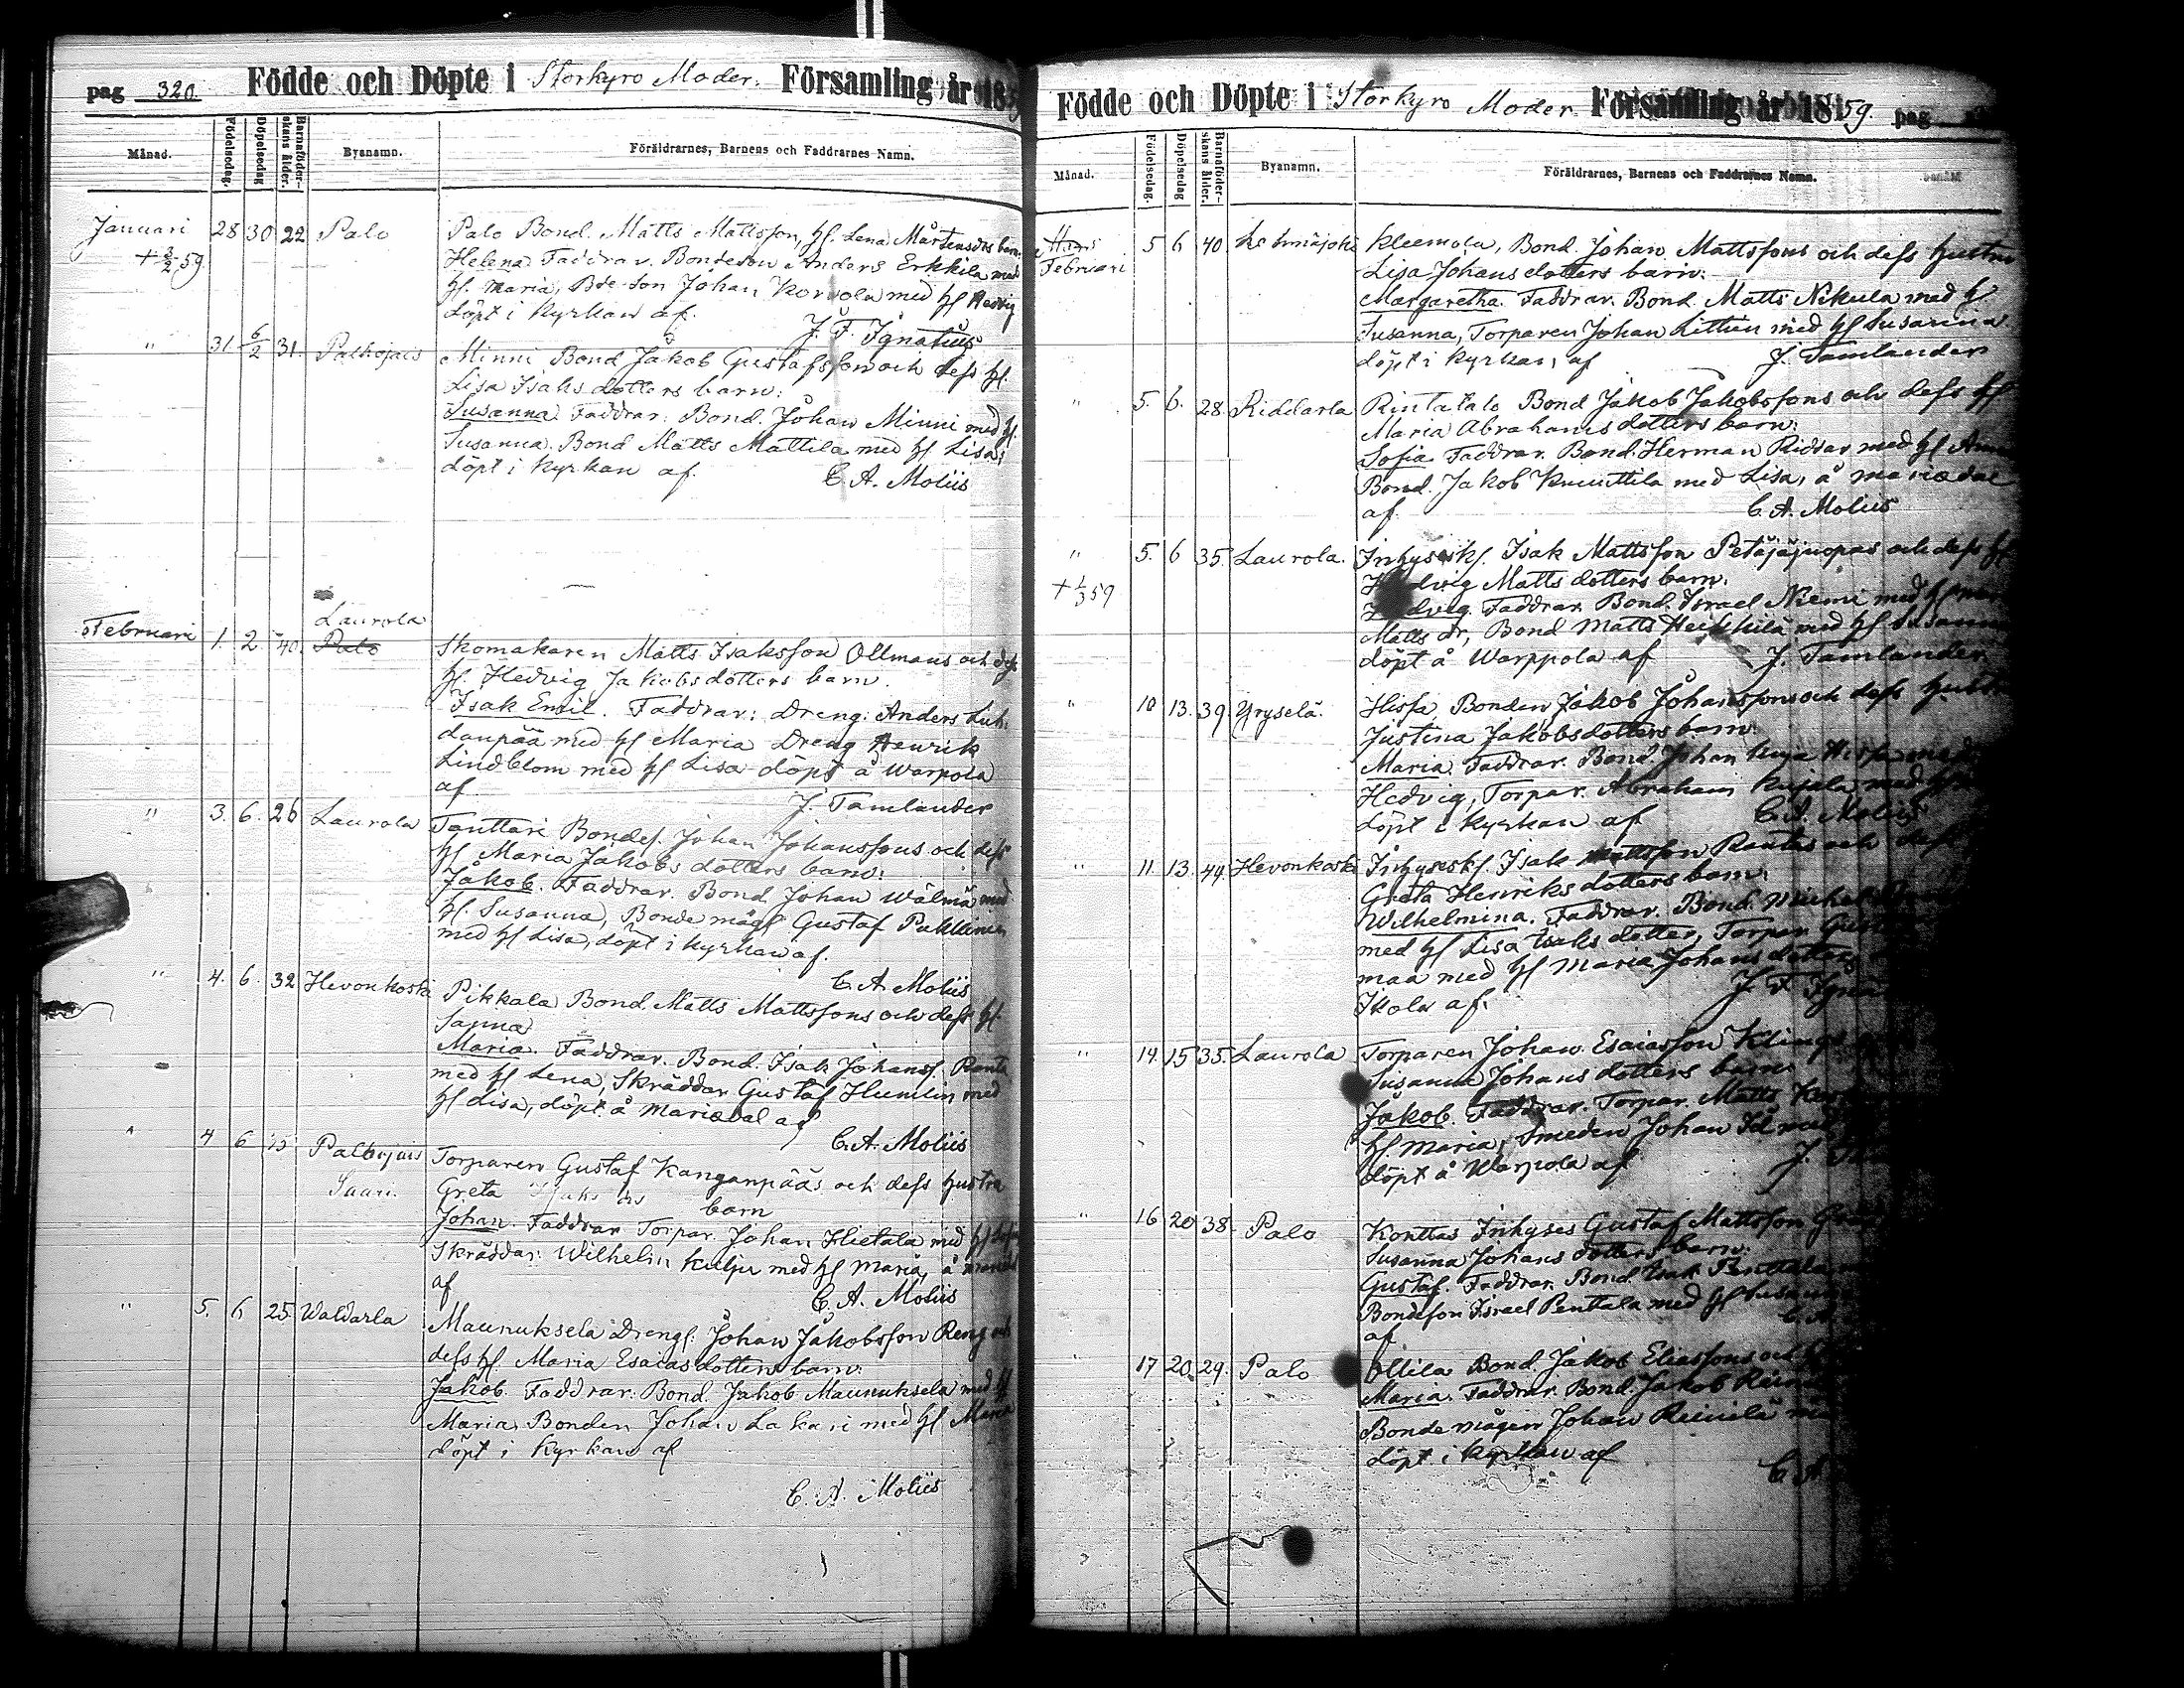 pag 320. Födde och Döpte i Storkyro Moder. Församling år 1859
Månad. Födelsedag. Döpelsedag Barnaföderskans ålder. Byanamn. Föräldrarnes, Barnens och Faddrarnes Namn.
Januari 28 30 22 Palo Palo Bond. Matts Mattsson, hf. Lena Mårtensdrs barn.
+ 3/2 59. Helena Faddrar. Bondeson Anders Erkkila med
hf. Maria, Bde-son Johan Korvola med hf Hedvig
döpt i Kyrkan af. J. F. Ignatius
" 31. 6/2 31. Palhojais Minni Bond Jakob Gustafsson och dess hf.
Lisa Isaks dotters barn:
Susanna. Faddrar: Bond. Johan Minni med hf.
Susanna. Bond Matts Mattila med hf Lisa,
döpt i Kyrkan af. C. A. Moliis
Laurola
Februari 1. 2. 40. Palo Skomakaren Matts Isaksson Ollmans och dess
hf. Hedvig Jakobs dotters barn.
Isak Emil. Faddrar: Dreng: Anders Luh-
danpää med hf Maria Dreng Henrik
Lindblom med hf Lisa döpt å Warpola
af J. Tamlander
" 3. 6. 26 Laurola Tanttari Bondes. Johan Johanssons och dess
hf Maria Jakobs dotters barn:
Jakob. Faddrar. Bond. Johan Wälmä med
hf. Susanna, Bonde mågs Gustaf Pukkinen
med hf Lisa, döpt i Kyrkan af.
C. A. Moliis
" 4. 6. 32 Hevonkoski Pikkala Bond. Matts Mattssons och dess hf.
Sanna
Maria. Faddrar. Bond. Isak Johanss. Ranta
med hf Lena, Skräddar Gustaf Humlin med
hf Lisa, döpt å Mariedal af
C. A. Moliis
" 4 6 Palhojais Torparen Gustaf Kanganpääs och dess hustru
Saari. Greta Isaks drs barn
Johan. Faddrar Torpar. Johan Hietala med hf
Skräddar: Wilhelm Kulju med hf Maria, å
af C. A. Moliis
" 5. 6 25 Waldarla Maunuksela Drengs. Johan Jakobsson Reng och
dess hf. Maria Esaias dotters barn:
Jakob. Faddrar: Bond. Jakob Maunuksela med hf
Maria, Bonden Johan Lakari med hf Maria
döpt i Kyrkan af
C. A. Moliis
Födde och Döpte i Storkyro Moder Församling år 1859. pag
Månad. Födelsedag. Döpelsedag Barnaföderskans ålder. Byanamn. Föräldrarnes, Barnens och Faddrarnes Namn.
Februari 5 6 40 Lehmäjoki Kleemola, Bond. Johan Mattssons och dess hustru
Lisa Johans dotters barn:
Margaretha. Faddrar. Bond. Matts Nikula med hf
Susanna, Torparen Johan Littun med hf Susanna.
döpt i Kyrkan, af J. Tamlander
" 5. 6. 28 Riddarla Rintatalo Bond Jakob Jakobssons och dess hf
Maria Abrahams dotters barn:
Sofia Faddrar. Bond. Herman Riddar med hf Anna
Bond. Jakob Knuuttila med Lisa, å Mariedal
af C. A. Moliis
" 5. 6 35. Laurola. Inhyseskf. Isak Mattsson Petäjäjuopas och dess hf
+ 1/3 59 Hedvig Matts dotters barn.
Hedvig. Faddrar. Bond. Israel Niemi med hf
Matts dr, Bond Matts Heikkilä med hf Susanna
döpt å Warppola af J. Tamlander.
" 10 13. 39. Yryselä. Hissa Bonden Jakob Johanssons och dess hustru
Justina Jakobs dotters barn:
Maria. Faddrar. Bond. Johan Kuja Hissa med
Hedvig, Torpar. Abraham Kujala med hf
döpt i Kyrkan af C. A. Moliis
" 11. 13. 44. Hevonkoski Inhyseskf. Isak Mattsson Rantas och dess
Greta Henriks dotters barn.
Wilhelmina. Faddrar. Bond.
med hf Lisa Isaks dotter, Torpar
maa med hf Maria Johans dotter,
Ikola af. J. F. Igna
" 14. 15 35. Laurola Torparen Johan Esaiasson Klings
Susanna Johans dotters barn
Jakob. Faddrar. Torpar. Matts
hf. Maria, Smeden Johan
döpt å Warpola af J.
" 16 20 38. Palo Konttas Inhyses Gustaf Mattsson
Susanna Johans dotters barn:
Gustaf. Faddrar. Bond. Isak Penttala
Bondeson Israel Penttala med hf Susanna
af C. A.
17 20. 29. Palo Ollila Bond. Jakob Eliassons och
Maria. Faddrar. Bond. Jakob
Bonde mågen Johan Reinilä
döpt i Kyrkan af
C. A